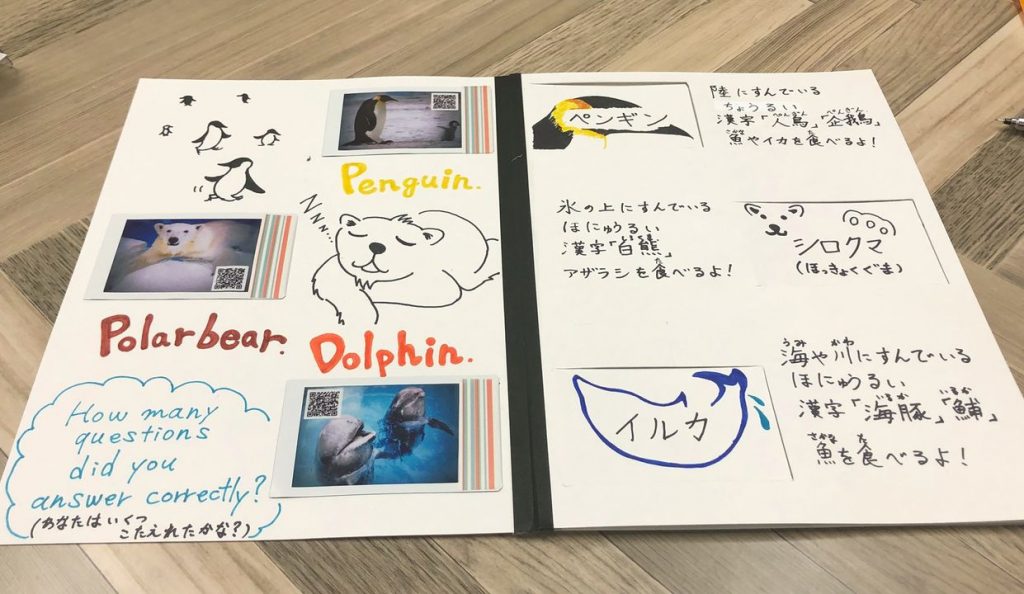 Penguin.
Nnn...
Polarbear.
Dolphin.
How many
questions
did you
answer correctly?
(あなたはいくつ
こたえれたかな?)
ペンギン
陸にすんでいる
ちょうるい
漢字「人鳥」「企鵝」
魚やイカを食べるよ!
氷の上にすんでいる
ほにゅうるい
漢字「白熊」
アザラシを食べるよ!
シロクマ
(ほっきょくぐま)
海や川にすんでいる
ほにゅうるい
漢字「海豚」「鯆」
魚を食べるよ!
イルカ